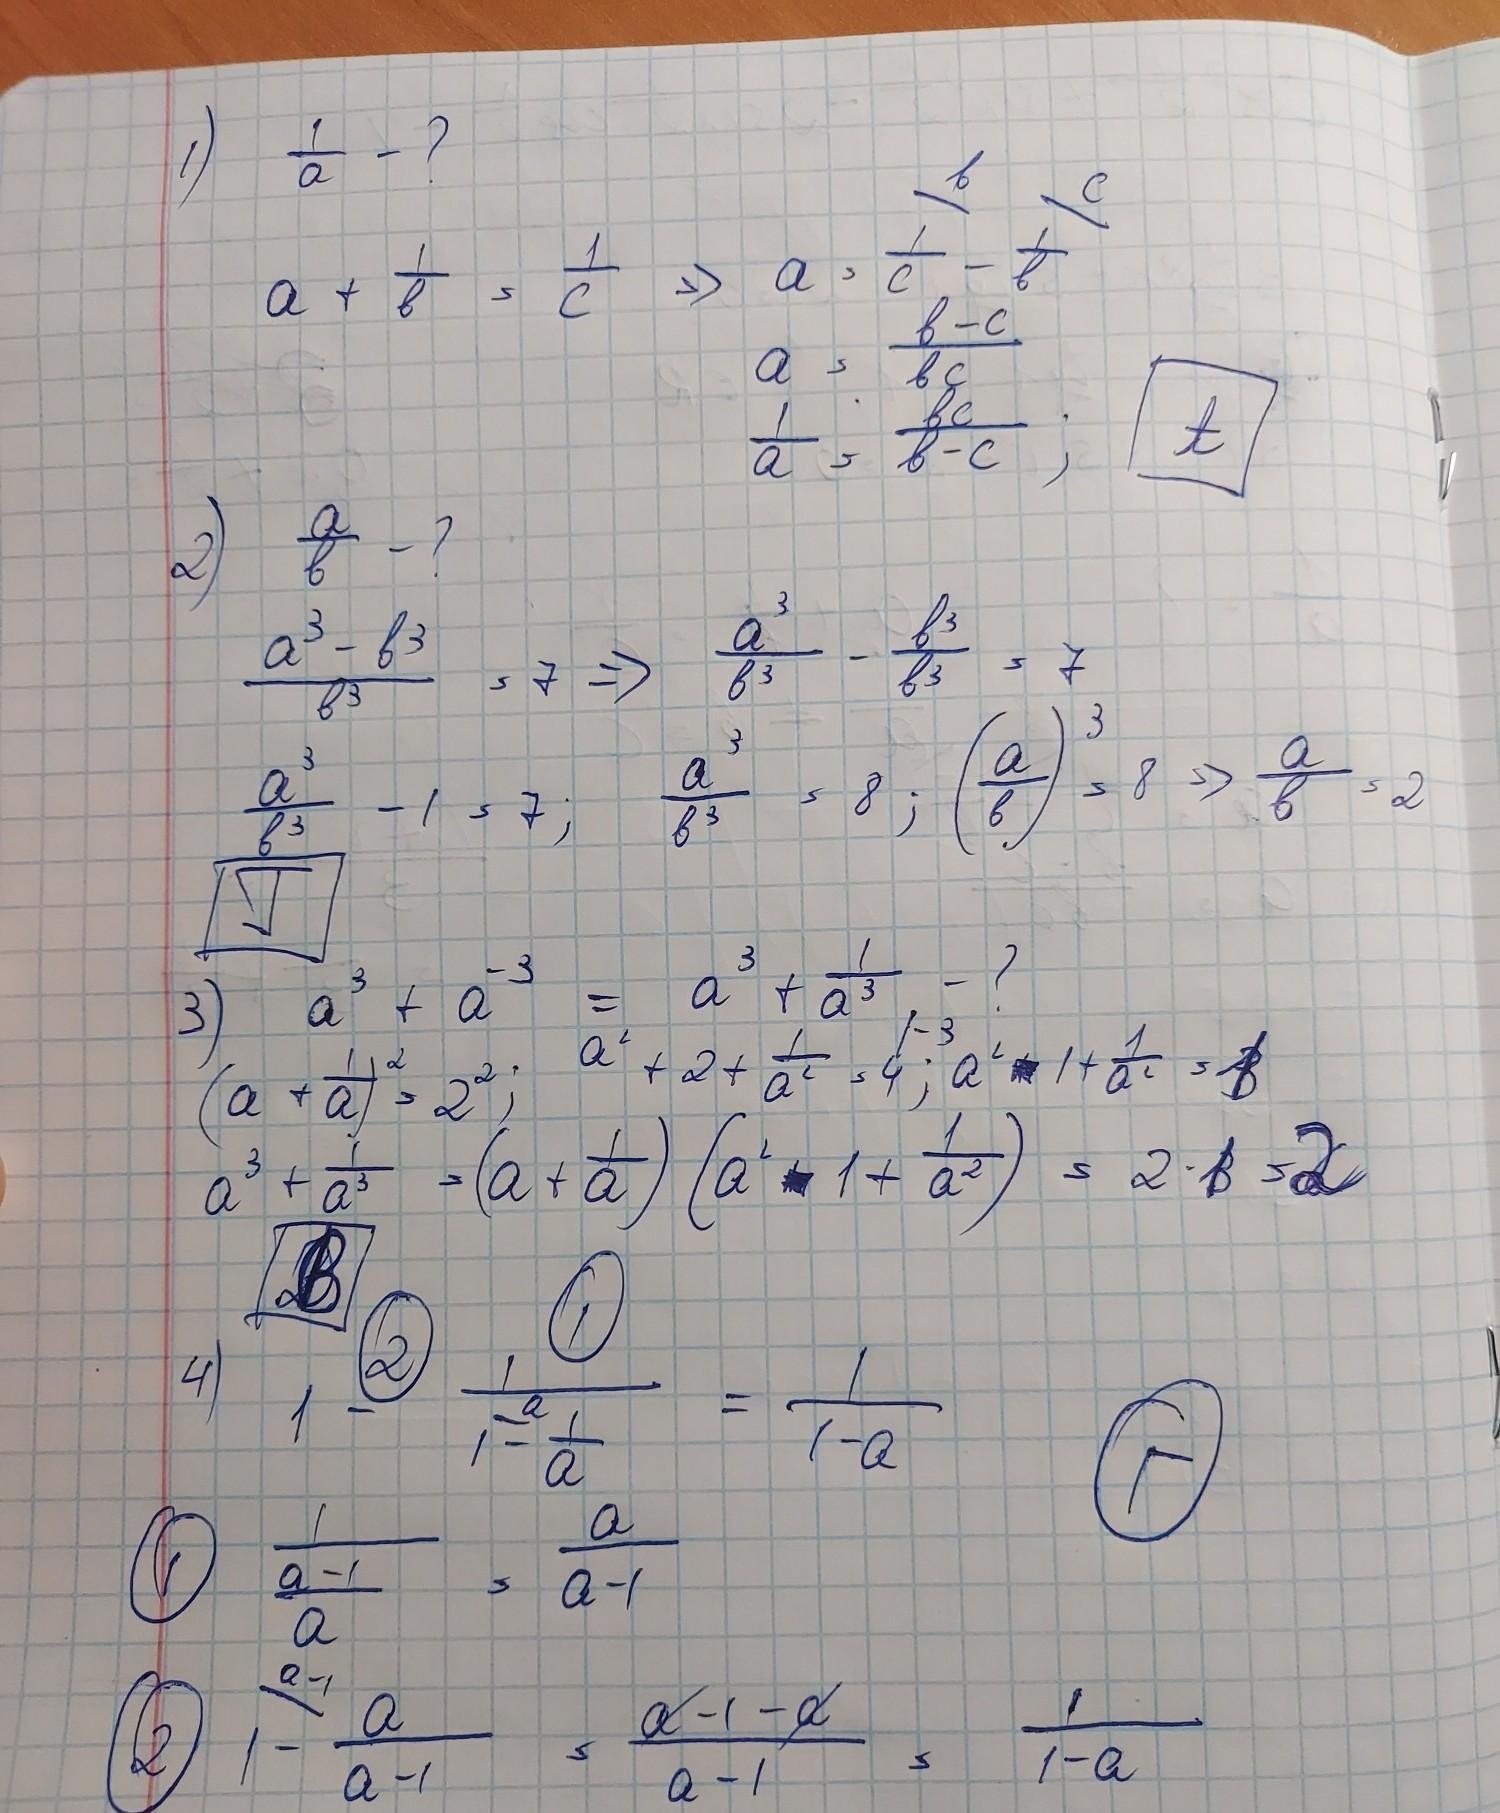 1) 1/a - ?
a + 1/в = 1/c => a = 1/c - 1/в
a = (в-c)/вc
1/a = вc/(в-c) ;
2) a/в - ?
(a³ - в³)/в³ = 7 => a³/в³ - в³/в³ = 7
a³/в³ - 1 = 7; a³/в³ = 8; (a/в)³ = 8 => a/в = 2
3) a³ + a⁻³ = a³ + 1/a³ - ?
(a + 1/a)² = 2²; a² + 2 + 1/a² = 4 |-3; a² - 1 + 1/a² = 1
a³ + 1/a³ = (a + 1/a)(a² - 1 + 1/a²) = 2·1 = 2
② ①
4) 1 - 1/(1 - 1/a) = 1/(1-a) Г
① 1/((a-1)/a) = a/(a-1)
② 1 - a/(a-1) = (a-1-a)/(a-1) = 1/(1-a)